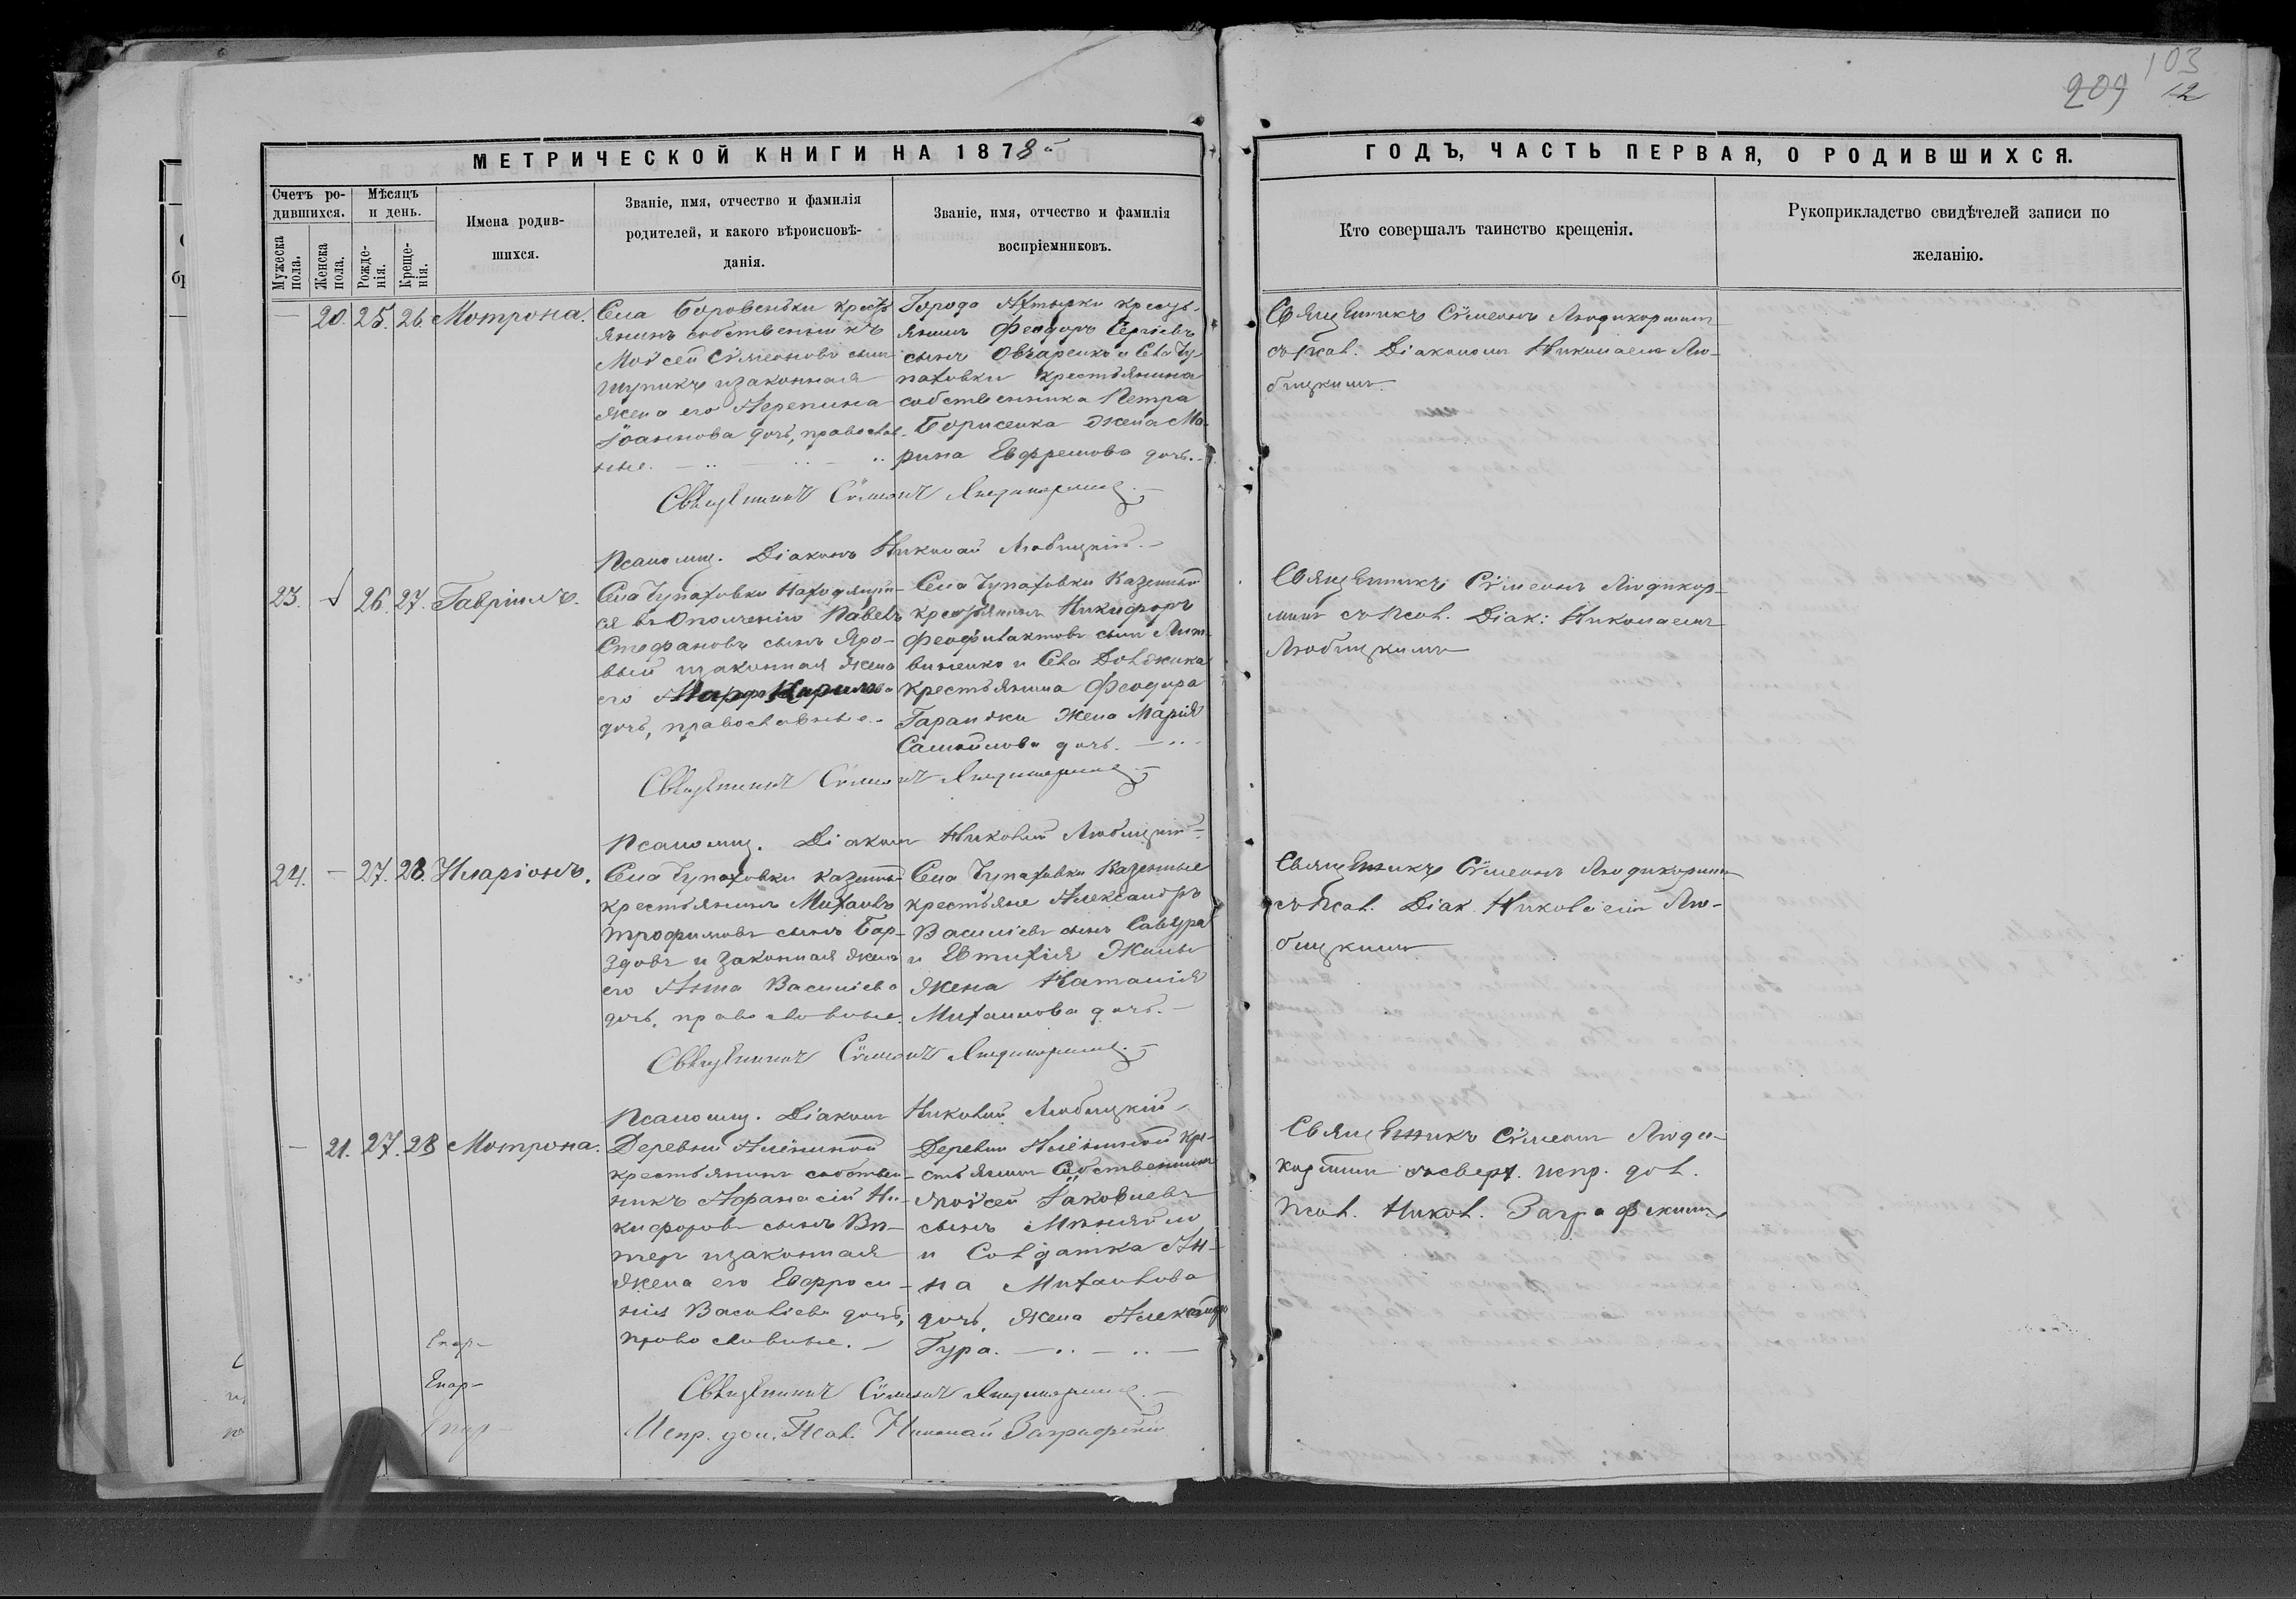 103
209 12
МЕТРИЧЕСКОЙ КНИГИ НА 1878й
ГОДЪ, ЧАСТЬ ПЕРВАЯ, О РОДИВШИХСЯ.
Счетъ ро-
дившихся.
Мужеска
пола.
Женска
пола.
Мѣсяцъ
и день.
Рожде-
нія.
Креще-
нія.
Имена родив-
шихся.
Званіе, имя, отчество и фамилія
родителей, и какого вѣроисповѣ-
данія.
Званіе, имя, отчество и фамилія
воспріемниковъ.
Кто совершалъ таинство крещенія.
Рукоприкладство свидѣтелей записи по
желанію.
— 20. 25. 26 Мотрона.
Села Боровеньки кресть-
янинъ собственникъ
Моѵсей Сѵмеоновъ сынъ
и законная
жена его
Іоаннова дочь, православ-
ные.
Города Ахтырки кресть-
янинъ Феодоръ Сергіевъ
сынъ Овчаренко и Села Чу-
паховки крестьянина
собственника Петра
Борисенка жена Ма-
рина Евфремова дочь.
Священникъ Сѵмеонъ Людикорминъ
съ Псал. Діакономъ Николаемъ Лю-
бицкимъ.
Священникъ Сѵмеонъ Людикорминъ
Псаломщ. Діаконъ Николай Любицкій.
23. 26. 27. Гавріилъ.
Села Чупаховки находящій-
ся въ Ополченіи Павелъ
Стефановъ сынъ Яро-
вый и законная жена
его Марфа Кирилова
дочь, православные.
Села Чупаховки Казенный
крестьянинъ Никифоръ
Феофилактовъ сынъ Лит-
виненко и Села Должика
крестьянина Феодора
Гаражки жена Марія
Самойлова дочь.
Священникъ Сѵмеонъ Людикор-
минъ съ Псал. Діак: Николаемъ
Любицкимъ
Священникъ Сѵмеонъ Людикорминъ
Псаломщ. Діаконъ Николай Любицкій
24. — 27. 28. Иларіонъ.
Села Чупаховки казенный
крестьянинъ Михаилъ
Трофимовъ сынъ Бар-
здовъ и законная жена
его Анна Василіева
дочь, православные.
Села Чупаховки Казенные
крестьяне Александръ
Василіевъ сынъ Савура
и Евтихія Жилы
жена Наталія
Михаилова дочь.
Священникъ Сѵмеонъ Людикорминъ
съ Псал. Діак. Николаемъ Лю-
бицкимъ
Священникъ Сѵмеонъ Людикорминъ
Псаломщ. Діаконъ Николай Любицкій
— 21. 27. 28 Мотрона.
Деревни Алёшиной
крестьянинъ собствен-
никъ Афанасій Ни-
кифоровъ сынъ Ви-
тер и законная
жена его Евфроси-
нія Василіева дочь,
православные.
Деревни Алёшиной кре-
стьянинъ Собственникъ
Моѵсей Іаковлевъ
сынъ
и Солдатка Ан-
на Михаилова
дочь, жена Александра
Гура.
Священникъ Сѵмеонъ Люди-
корминъ съ сверх. испр. дол.
Псал. Никол. Заграфскимъ
Священникъ Сѵмеонъ Людикорминъ
Испр. дол. Псал. Николай Заграфскій
Епар-
Епар-
Епар-